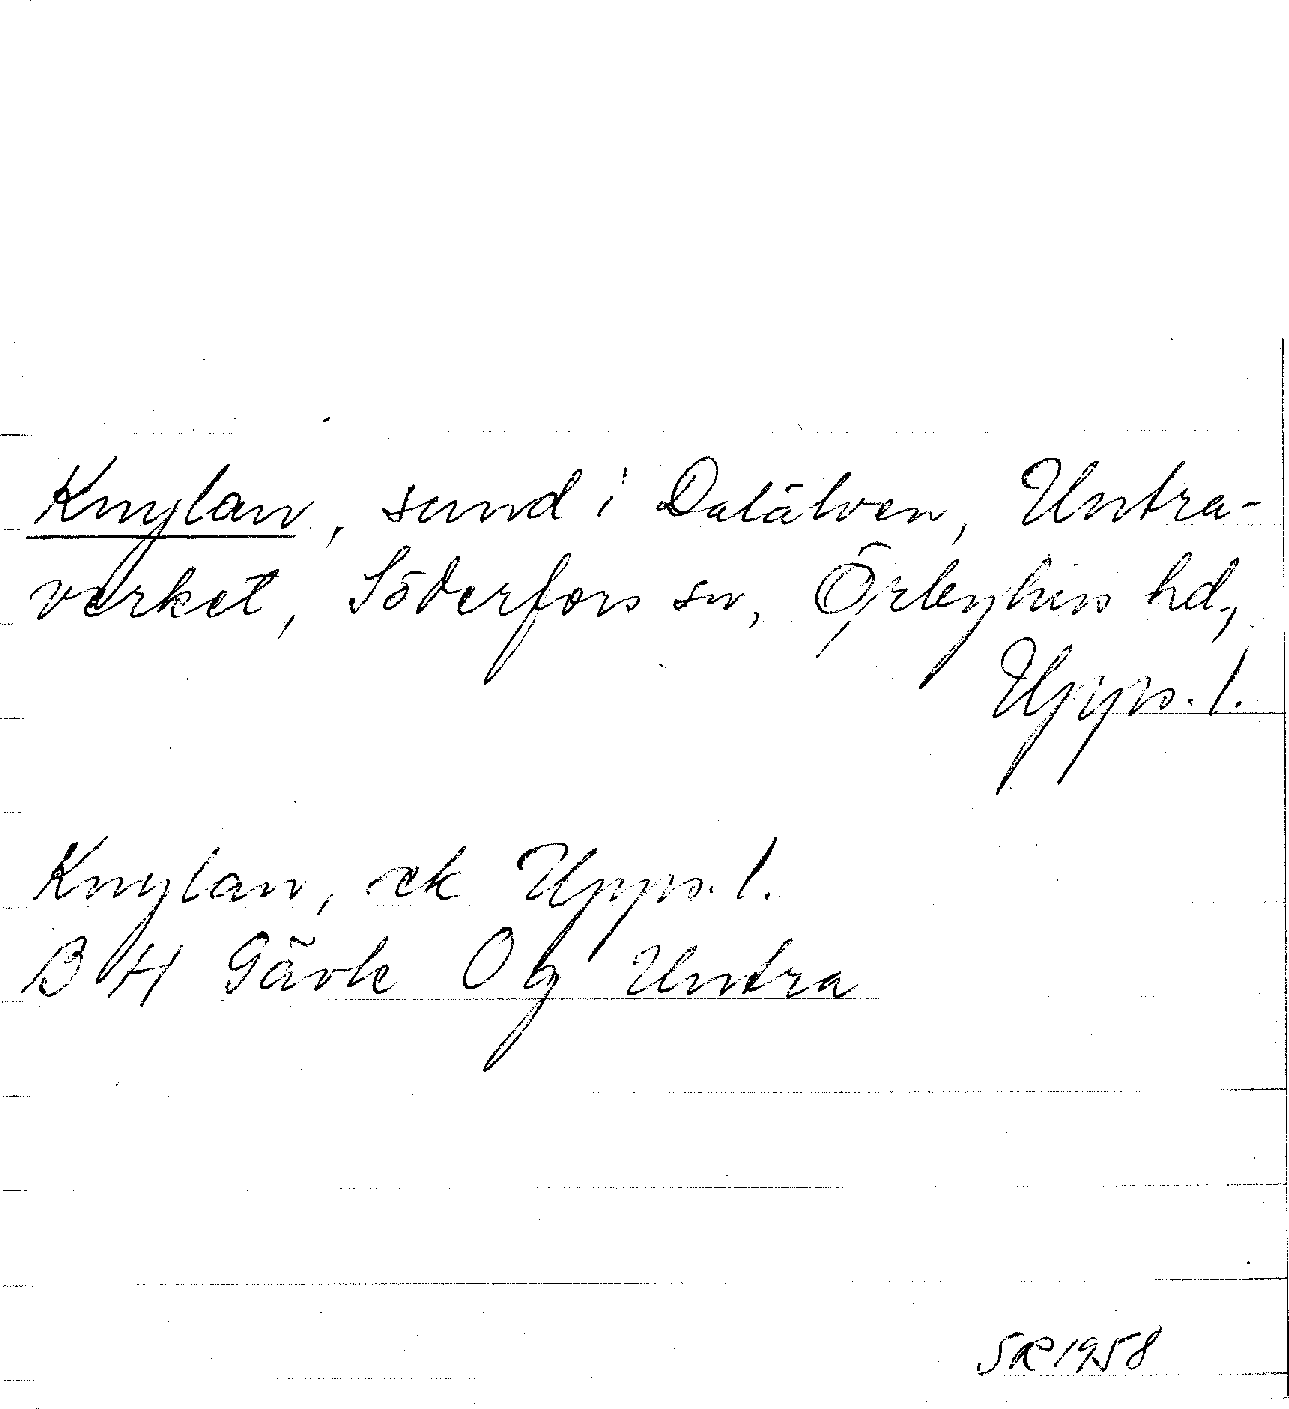 Knylan, sund i Dalälven, Untra-
verket, Söderfors sn, Örbyhus hd,
Upps. l.
Knylan, ek Upps. l.
B 4 Gävle Og Untra
SR 1958